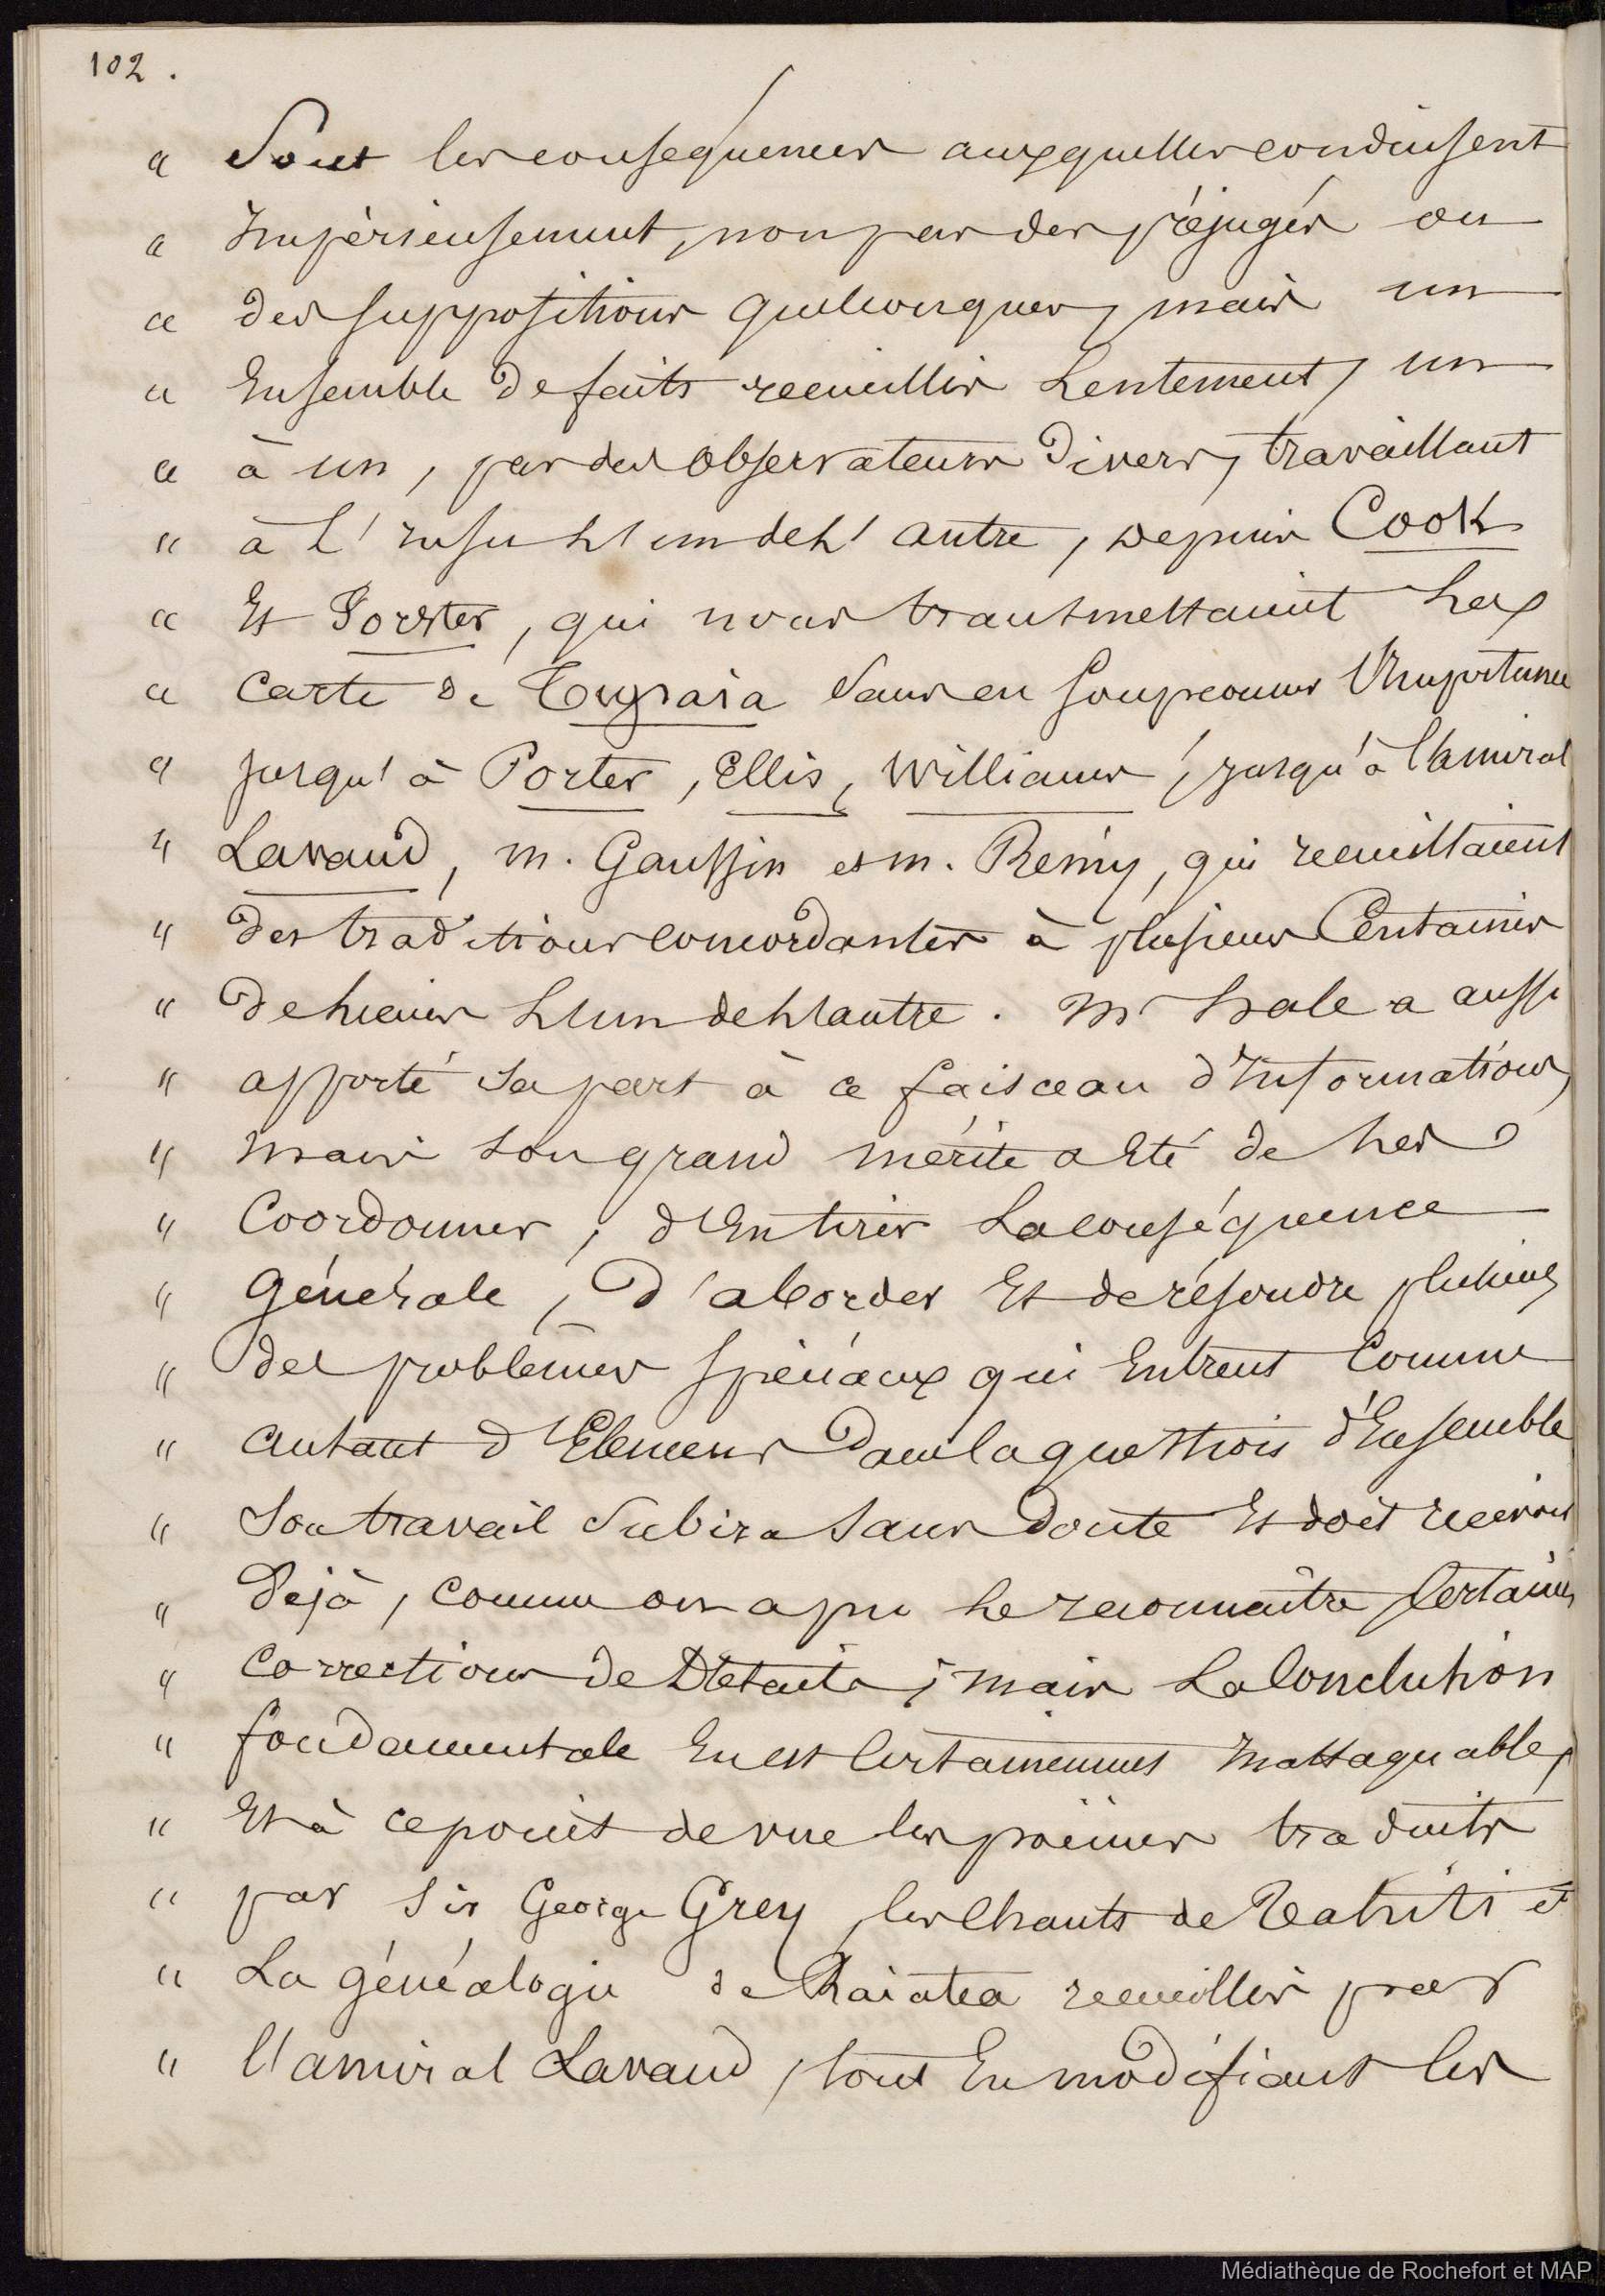 102.
" Sont les conséquences auxquelles conduisent
" Impérieusement, non pas des préjugés ou
" des suppositions quelconques, mais un
" Ensemble de faits recueillis Lentement, un
" à un, par des observateurs Divers, travaillant
" à L'insu L'un de L'autre, depuis Cook
" Et Forster, qui nous transmettaient La
" Carte de Tupaia Sans en Soupconner l'Importance
" Jusqu'à Porter, Ellis, Williams, jusqu'à l'amiral
" Lavaud, m. Gaussin et m. Remy, qui recueillaient
" des traditions concordantes à plusieurs Centaines
" de Lieues L'un de L'autre. Mr Hale a aussi
" apporté sa part à ce faisceau d'Informations,
" mais son grand mérite a Eté de Les
" Coordonner, d'En tirer La conséquence
" Générale, D'aborder Et de résoudre plusieurs
" des problèmes Spéciaux qui Entrent Comme
" autant d'Elemens Dans la question d'Ensemble
" Son travail Subira Sans Doute Et doit recevoir
" Dejà, comme on a pu Le reconnaître, Certaines
" Corrections de Détails; mais La Conclusion
" fondamentale En est Certainement Inattaquable,
" Et à ce point de vue les poèmes traduits
" par Sir George Grey, les Chants de Tahiti et
" La généalogie de Raiatea recueillis par
" l'amiral Lavaud, tout En modifiant les
Médiathèque de Rochefort et MAP